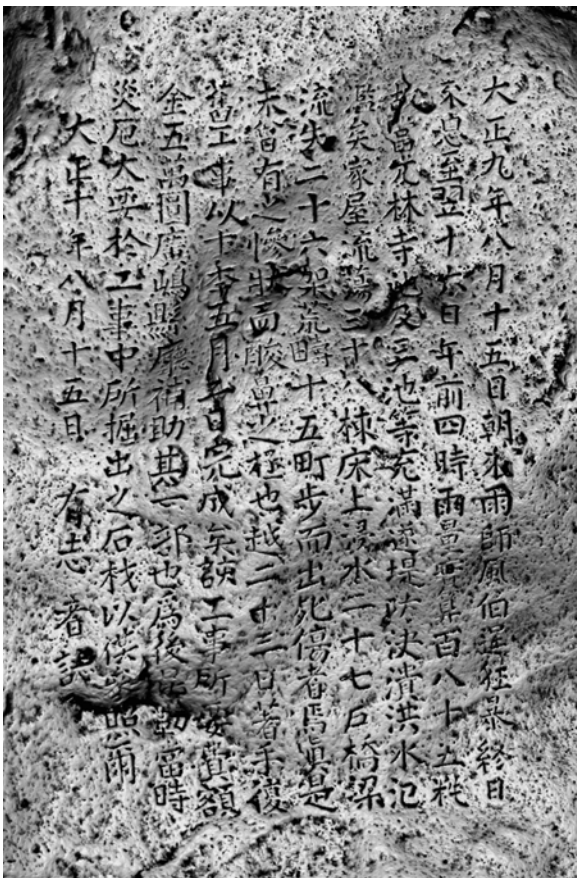 大正九年八月十五日朝来雨師風伯逞狂暴終日
不息至翌十六日午前四時雨量無算百八十五粍
邑冗林寺池及三池等充満遂堤防決潰洪水氾
濫矣家屋流蕩三十八棟床上浸水二十七戸橋梁
流失二十六架荒疇十五町歩而出死傷者焉真是
未曽有之惨状而酸鼻之極也越二十三日着手復
旧工事以十年五月 日完成矣該工事所要費額
金五萬圓広嶋縣廳補助其一部也為後昆勒當時
災厄大要於工事中所掘出之石栈以供 照爾
大正十年八月十五日 有志者誌